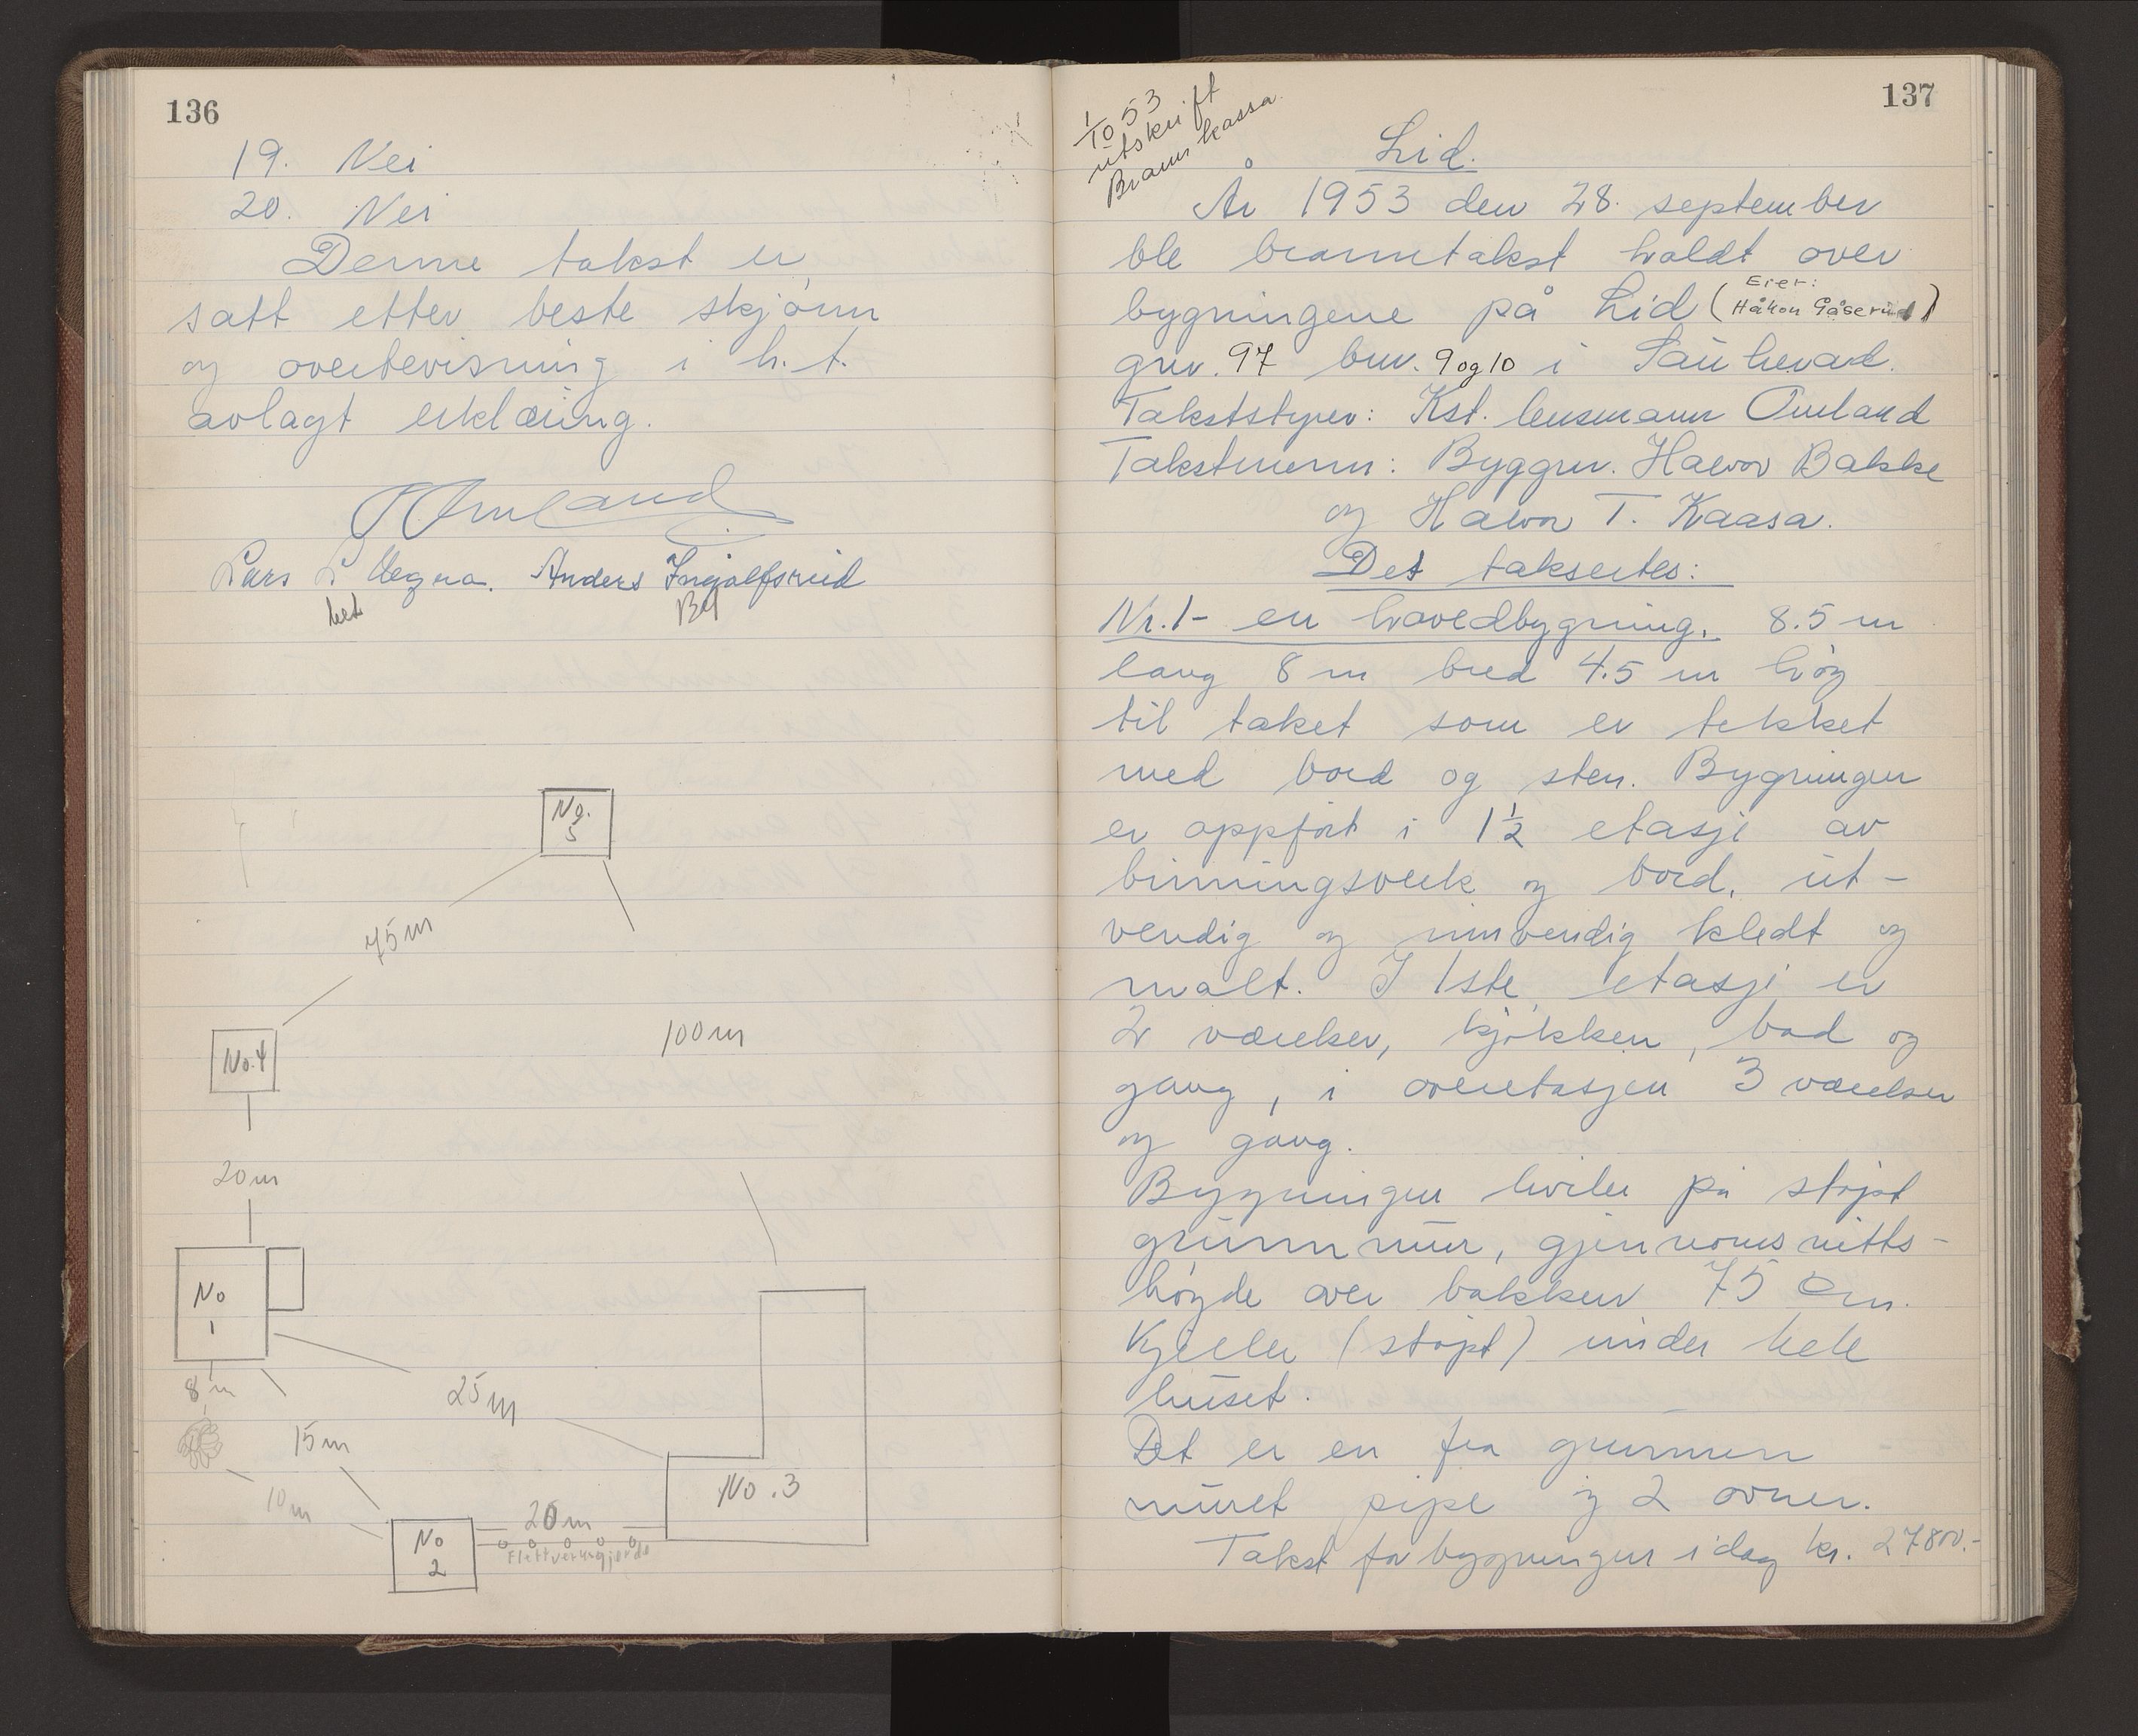 136
19. Nei
20. Nei
Denne takst er
satt etter beste skjønn
og overbevisning i h. t.
avlagt erklæring.
Omland
Lars L Anders Ingolfsrud
No. 5
75 m
No. 4
100 m
20 m
No 1
8 m
25 m
15 m
10 m
No. 3
No 2
20 m
Flettverksgjerde
137
1/10 53
utskrift
Brannkassa
Lid.
År 1953 den 28. september
ble branntakst holdt over
bygningene på Lid (Eier: Håkon Gåserud)
gnr. 97 bnr. 9 og 10 i Sauherad.
Takststyrer: Kst. lensmann Omland
Takstmenn: Byggm. Halvor Bakke
og Halvor T. Kaasa.
Det takseertes:
Nr. 1 - en hovedbygning. 8.5 m
lang 8 m bred 4.5 m høg
til taket som er tekket
med bord og sten. Bygningen
er oppført i 1½ etasje av
binningsverk og bord, ut-
vendig og innvendig kledt og
malt. I 1ste etasje er
2 værelser, kjøkken, bad og
gang, i overetasjen 3 værelser
og gang.
Bygningen hviler på støpt
grunnmur, gjennomsnitts-
høyde over bakken 75 cm.
Kjeller (støpt) under hele
huset.
Det er en fra grunnen
muret pipe og 2 ovner.
Takst for bygningen i dag kr. 27800.-